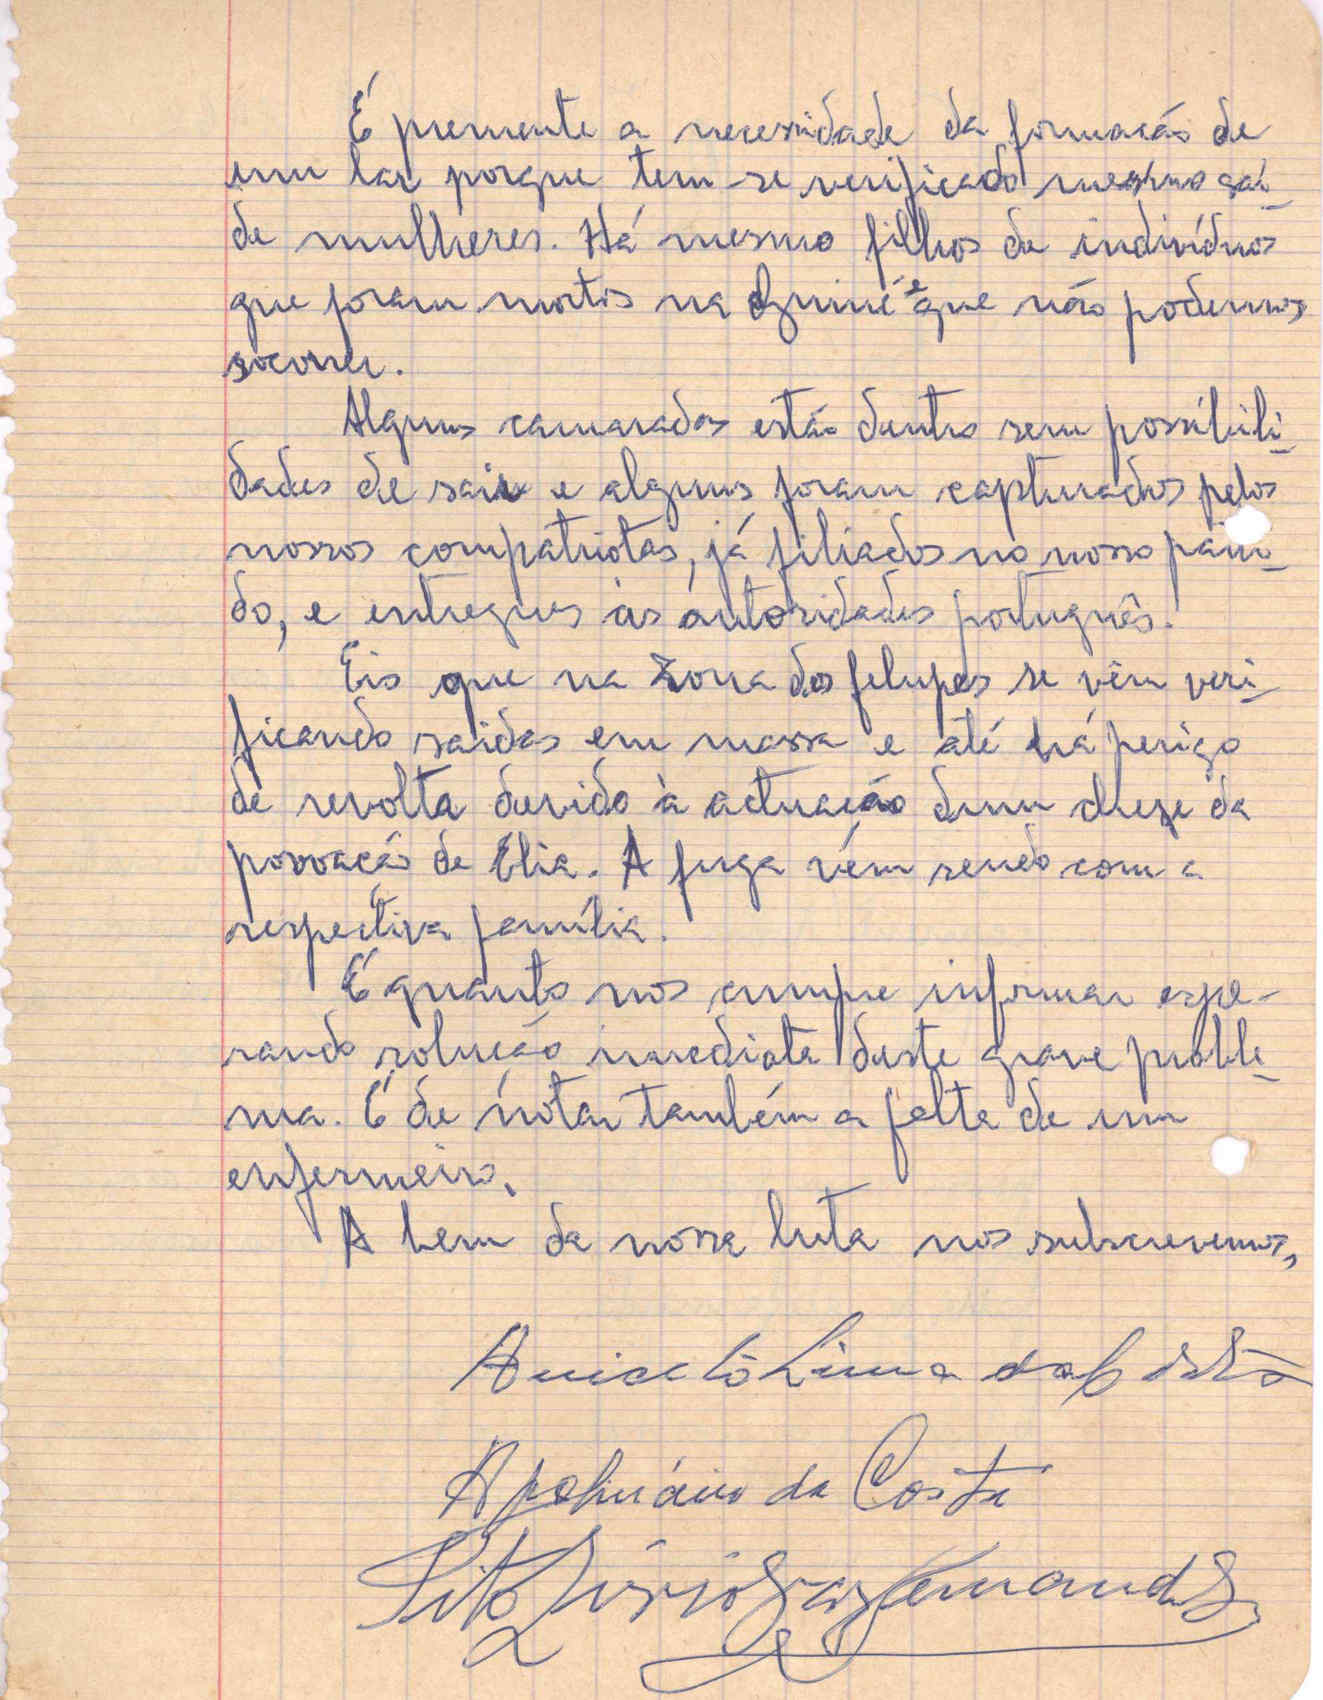 É premente a necessidade da formacão de
um lar porque tem-se verificado mesmo saí-
de mulheres. Há mesmo filhos de indivíduos
que foram mortos na Guiné e que não podemos
socorrer.
Alguns camaradas estão dentro sem possibili-
dades de sair e alguns foram capturados pelos
nossos compatriotas, já filiados no nosso parti-
do, e entregues às autoridades português.
Eis que na zona dos felupes se vêm veri-
ficando saidas em massa e até há perigo
de revolta devido à actuação dum chefe da
povoacão de Elia. A fuga vém sendo com a
respectiva família.
É quanto nos cumpre informar espe-
rando solucão imediata deste grave proble-
ma. É de notar também a falta de um
enfermeiro.
A bem da nossa luta nos subscrevemos,
Aniceto Lima da Costa
Apolinário da Costa
Tito Lívio Fernandes